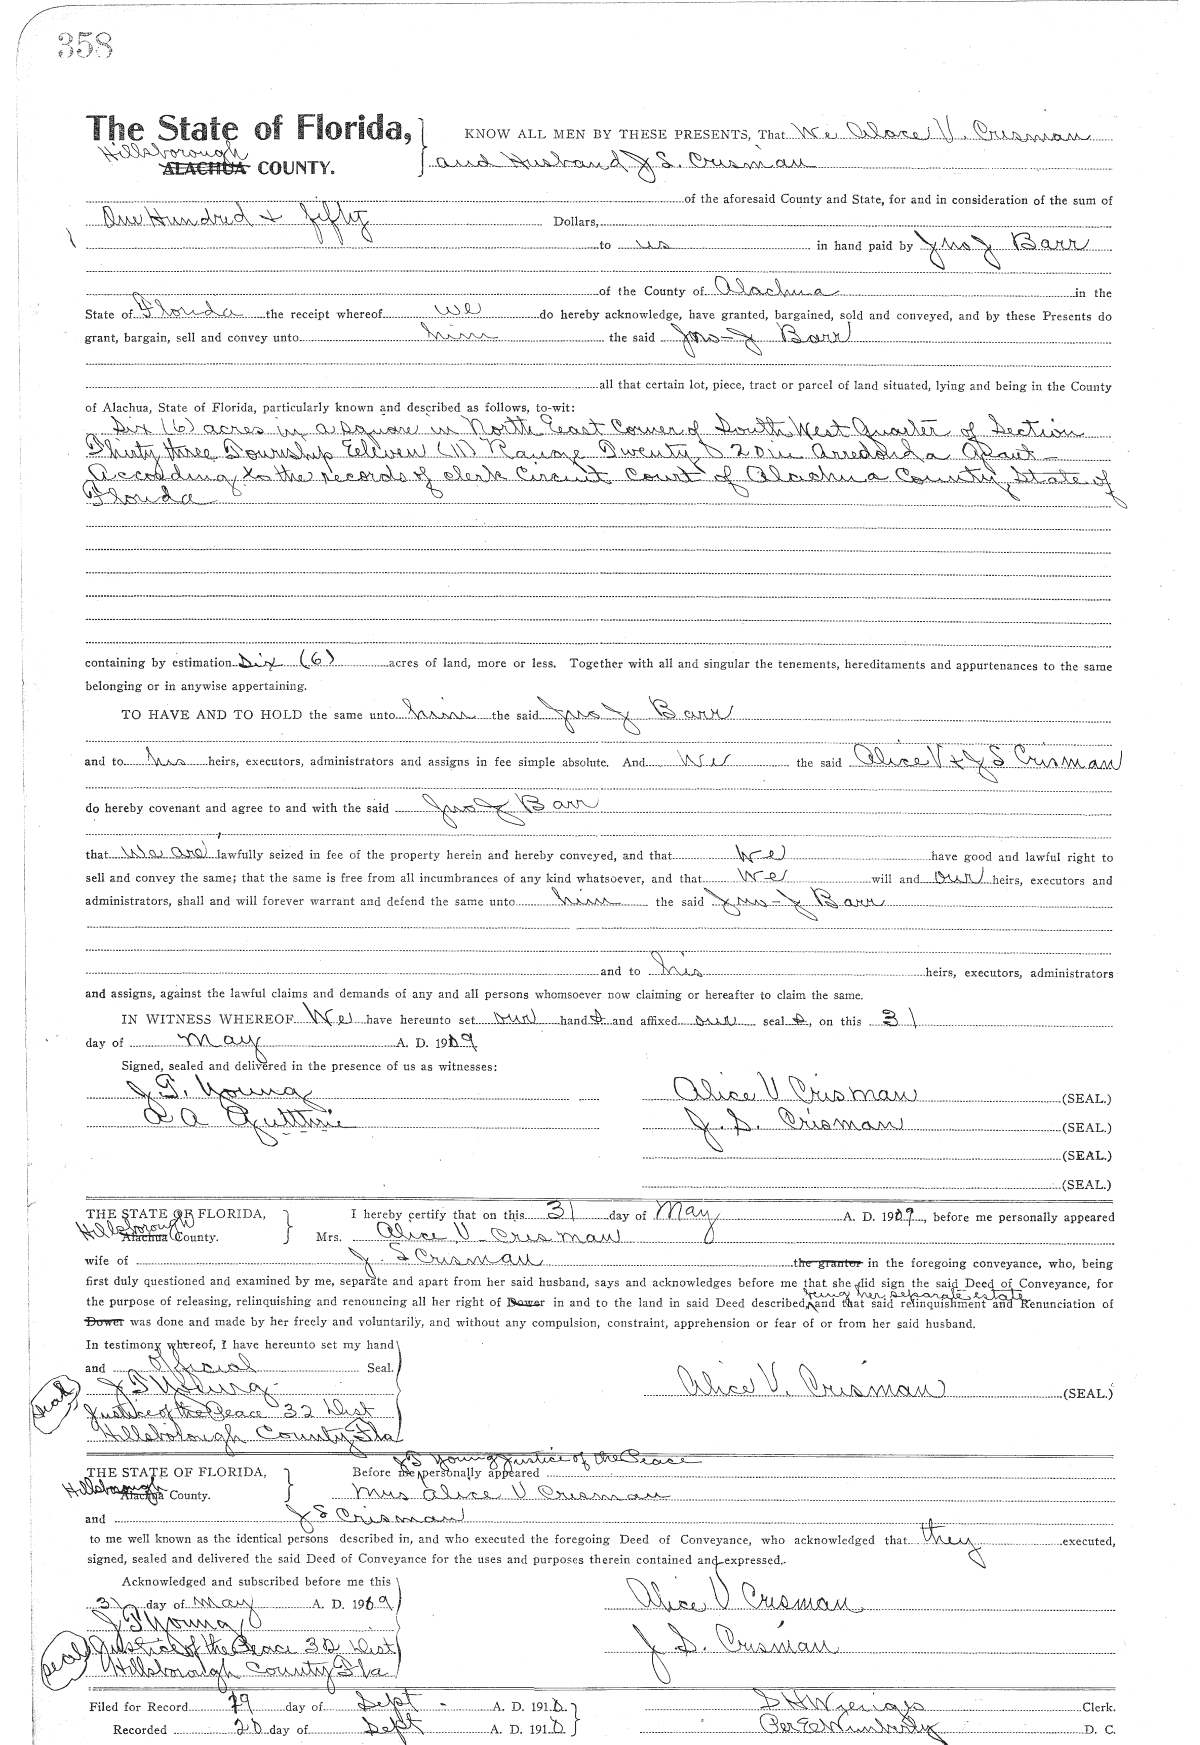 358
The State of Florida,
Hillsborough
ALACHUA COUNTY.
KNOW ALL MEN BY THESE PRESENTS, That We Alace V. Crisman
and Husband J S. Crisman
of the aforesaid County and State, for and in consideration of the sum of
One Hundred & fifty Dollars,
to us in hand paid by Jno J Barr
of the County of Alachua in the
State of Florida the receipt whereof we do hereby acknowledge, have granted, bargained, sold and conveyed, and by these Presents do
grant, bargain, sell and convey unto him the said Jno-J Barr
all that certain lot, piece, tract or parcel of land situated, lying and being in the County
of Alachua, State of Florida, particularly known and described as follows, to-wit:
Six (6) acres in a square in North East Corner of South West Quarter of Section
Thirty three Township Eleven (11) Range Twenty 20 in Arredonda Grant
According to the records of clerk Circuit Court of Alachua County, State of
Florida
containing by estimation Six (6) acres of land, more or less. Together with all and singular the tenements, hereditaments and appurtenances to the same
belonging or in anywise appertaining.
TO HAVE AND TO HOLD the same unto him the said Jno J Barr
and to his heirs, executors, administrators and assigns in fee simple absolute. And We the said Alice V & J S Crisman
do hereby covenant and agree to and with the said Jno J Barr
that We are lawfully seized in fee of the property herein and hereby conveyed, and that We have good and lawful right to
sell and convey the same; that the same is free from all incumbrances of any kind whatsoever, and that We will and our heirs, executors and
administrators, shall and will forever warrant and defend the same unto him the said Jno-J Barr
and to his heirs, executors, administrators
and assigns, against the lawful claims and demands of any and all persons whomsoever now claiming or hereafter to claim the same.
IN WITNESS WHEREOF We have hereunto set our hand s and affixed our seal s, on this 31
day of May A. D. 1909
Signed, sealed and delivered in the presence of us as witnesses:
J. T. Young Alice V Crisman (SEAL.)
A Guttrie J. S. Crisman (SEAL.)
(SEAL.)
(SEAL.)
THE STATE OF FLORIDA,
Hillsborough
Alachua County.
I hereby certify that on this 31 day of May A. D. 1909, before me personally appeared
Mrs. Alice V. Crisman
wife of J. S Crisman the grantor in the foregoing conveyance, who, being
first duly questioned and examined by me, separate and apart from her said husband, says and acknowledges before me that she did sign the said Deed of Conveyance, for
being her separate estate
the purpose of releasing, relinquishing and renouncing all her right of Dower in and to the land in said Deed described, and that said relinquishment and Renunciation of
Dower was done and made by her freely and voluntarily, and without any compulsion, constraint, apprehension or fear of or from her said husband.
In testimony whereof, I have hereunto set my hand
and official Seal.
seal J T Young Alice V. Crisman (SEAL.)
Justice of the Peace 32 Dist
Hillsborough County Fla
J T Young Justice of the Peace
THE STATE OF FLORIDA,
Hillsborough
Alachua County.
Before me, personally appeared
Mrs Alice V Crisman
and J S Crisman
to me well known as the identical persons described in, and who executed the foregoing Deed of Conveyance, who acknowledged that they executed,
signed, sealed and delivered the said Deed of Conveyance for the uses and purposes therein contained and expressed.
Acknowledged and subscribed before me this
31 day of May A. D. 1909 Alice V Crisman
J T Young
seal Justice of the Peace 32 Dist J S. Crisman
Hillsborough County Fla
Filed for Record day of Sept A. D. 1910 Clerk.
Recorded 20 day of Sept A. D. 1910 Per E Wimberly D. C.